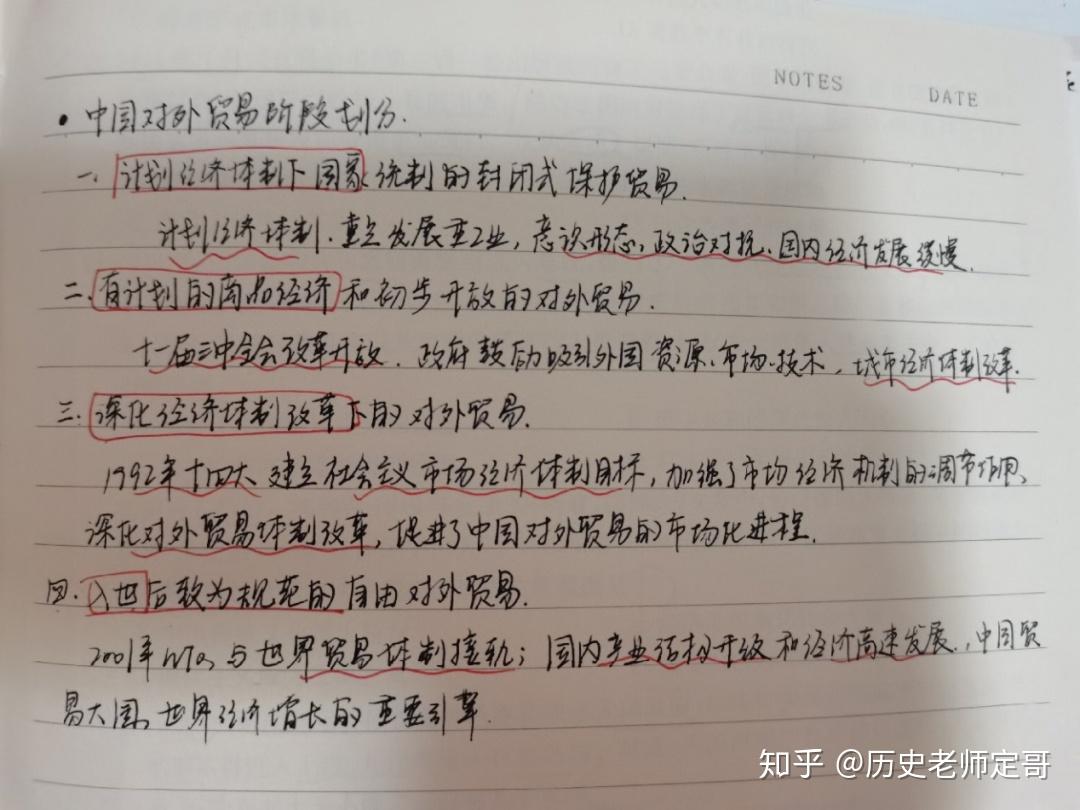 NOTES DATE
• 中国对外贸易阶段划分.
一. 计划经济体制下国家统制的封闭式保护贸易.
计划经济体制. 重点发展重工业, 意识形态, 政治对抗、国内经济发展缓慢.
二. 有计划的商品经济和初步开放的对外贸易.
十一届三中全会改革开放. 政府鼓励吸引外国资源、市场、技术, 城市经济体制改革.
三. 深化经济体制改革下的对外贸易.
1992年十四大 建立社会主义市场经济体制目标, 加强了市场经济机制的调节作用、
深化对外贸易体制改革, 促进了中国对外贸易的市场化进程.
四. 入世后较为规范的自由对外贸易.
2001年WTO 与世界贸易体制接轨; 国内产业结构升级和经济高速发展., 中国贸
易大国、世界经济增长的重要引擎.
知乎 @历史老师定哥